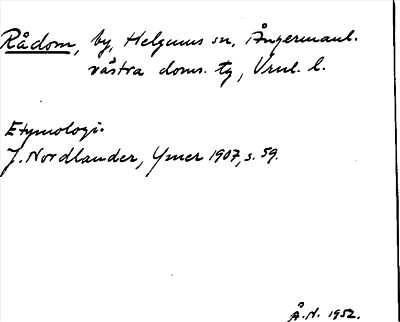 Rådom, by, Helgums sn, Ångermanl.
västra doms. tg, Vrnl. l.
Etymologi.
J. Nordlander, Ymer 1907, s. 59.
Å.N. 1952.